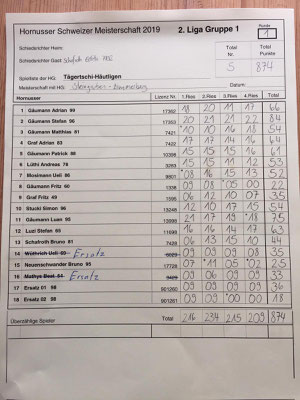 Hornusser Schweizer Meisterschaft 2019 2. Liga Gruppe 1 Runde 1
Schiedsrichter Heim: Total Total
Schiedsrichter Gast: Nr. Punkte
Spielliste der HG: Tägertschi-Häutligen 5 874
Meisterschaft mit HG:
Hornusser Lizenz Nr. 1.Ries 2.Ries 3.Ries 4.Ries Total
1 Gäumann Adrian 99 17362 18 20 11 17 66
2 Gäumann Stefan 96 20 21 21 22 84
3 Gäumann Matthias 81 7421 10 10 16 18 54
4 Graf Adrian 17 17 14 16 64
5 Gäumann Patrick 15 15 15 16 61
6 Lüthi Andreas 15 15 11 12 53
7 Mosimann Ueli 9801 08 16 15 13 52
8 Gäumann Fritz 60 1338 09 08 05 00 22
9 Graf Fritz 49 06 12 10 07 35
10 Stucki Simon 96 13248 12 10 17 15 54
11 Gäumann Luan 93 21 17 19 18 75
12 Luzi Stefan 16 16 14 17 63
13 Schafroth Bruno 81 7428 06 13 15 10 44
14 Wüthrich Ueli Ersatz 09 09 09 08 35
15 Neuenschwander Bruno 95 17728 07 11 05 02 25
16 Mathys Beat Ersatz 09 06 09 09 33
17 Ersatz 01 98 901260 09 09 09 09 36
18 Ersatz 02 98 901261 09 09 00 00 18
Überzählige Spieler Total 216 234 215 209 874